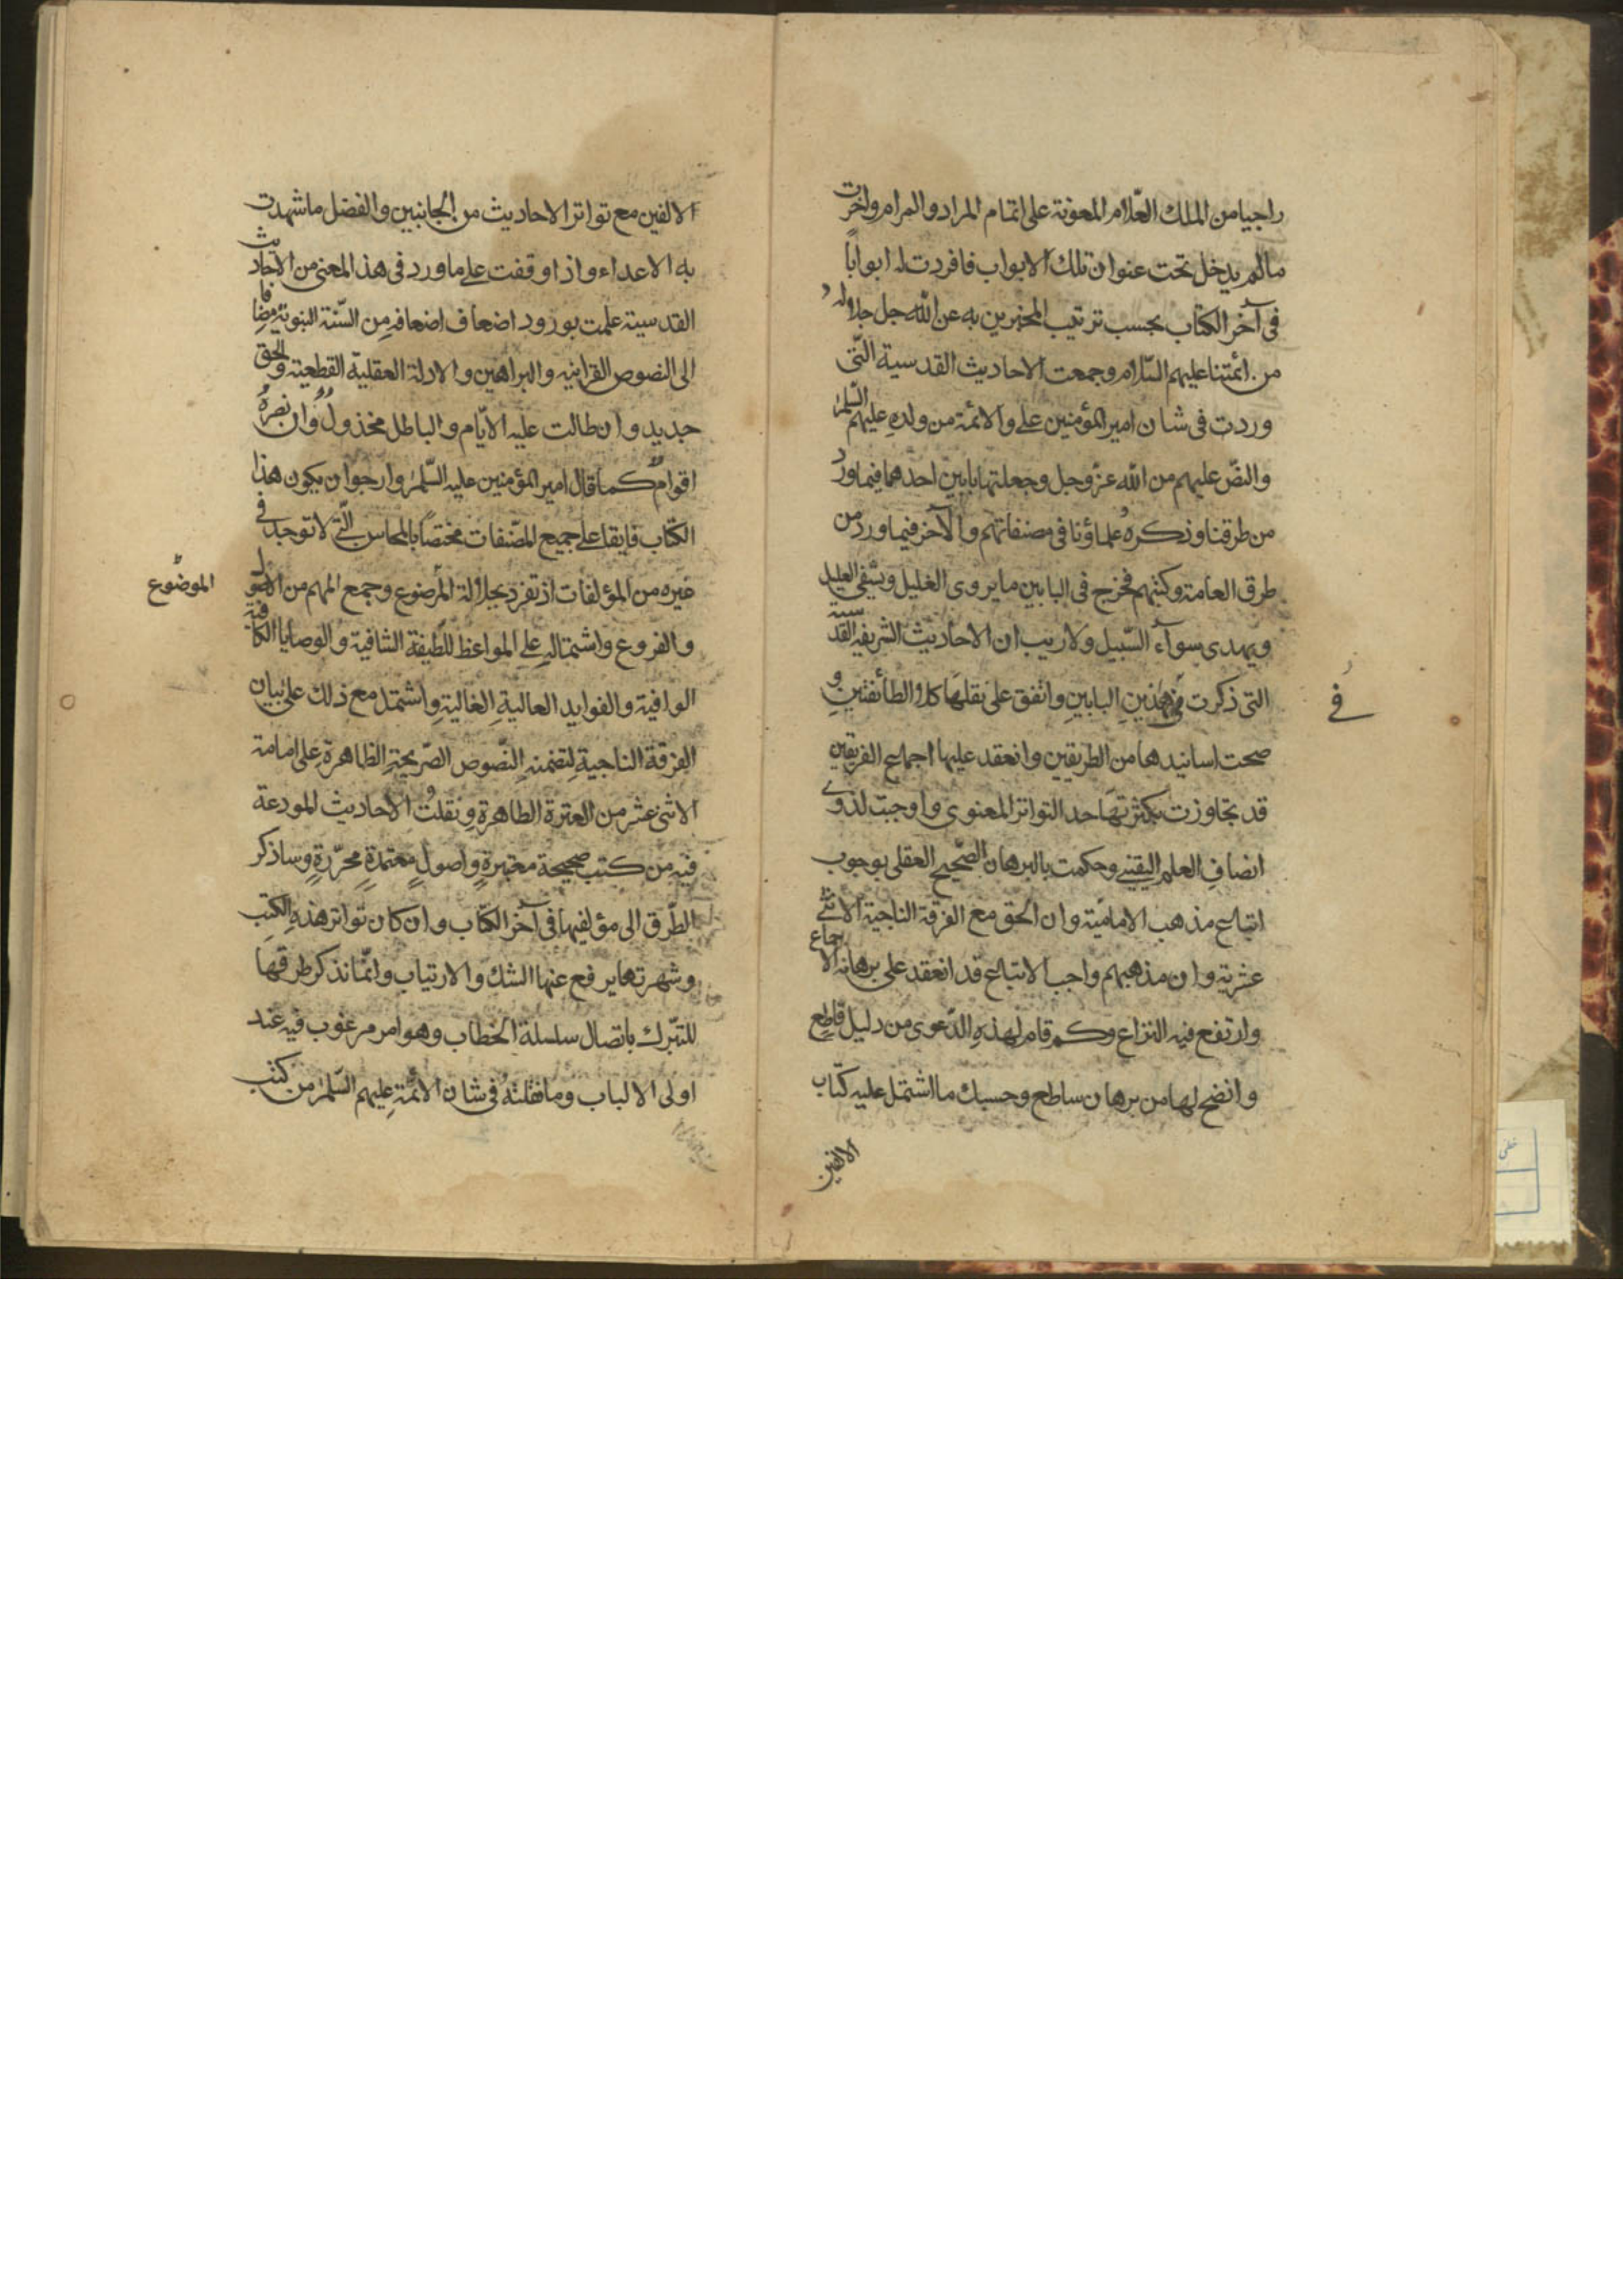 راجيا من الملك العلّام المعونة على اتمام المراد والمرام واخرت
مالم يدخل تحت عنوان تلك الابواب فافردت له ابواباً
فى آخر الكتاب بحسب ترتيب المخبرين به عن الله جل جلاله و
من ائمتنا عليهم السّلام وجمعت الاحاديث القدسية الّتى
وردت فى شان امير المؤمنين على والائمة من ولده عليهم السّلم
والنصّ عليهم من الله عزّ وجل وجعلتها بابين احدهما فيما ورد
من طرقنا وذكره علماؤنا فى مصنفاتهم والآخر فيما ورد من
طرق العامة وكتبهم فخرج فى البابين ما يروى الغليل ويشفى العليل
ويهدى سوآء السّبيل ولاريب ان الاحاديث الشريفه القدسية
التى ذكرت فى هذين البابين واتفق على نقلها كلا الطائفتين و
فے
صحت اسانيدها من الطريقين وانعقد عليها اجماع الفريقين
قد تجاوزت بكثرتها حد التواتر المعنوى واوجبت لذوى
انصاف العلم اليقينى وحكمت بالبرهان الصّحيح العقلى بوجوب
اتباع مذهب الامامية وان الحق مع الفرقة الناجية الاثنى
عشرية وان مذهبهم واجب الاتباع قد انعقد على برهانه الاجماع
وارتفع فيه النزاع وكم قام لهذه الدّعوى من دليل قاطع
واتضح لها من برهان ساطع وحسبك ما اشتمل عليه كتاب
الالفين
الالفين مع تواتر الاحاديث من الجانبين والفضل ما شهدت
به الاعداء واذا وقفت على ما ورد فى هذ المعنى من الاحاديث
القدسية علمت بورود اضعاف اضعافه من السّنة النبوية مضافا
الى النصوص القرانيه والبراهين والادلة العقليّة القطعية والحق
جديد وان طالت عليه الايّام والباطل مخذولٌ وان نصرهُ
اقوامٌ كما قال امير المؤمنين عليه السّلم وارجوا ن يكون هذا
الكتاب فايقا على جميع المصّنفات مختصاً بالمحاسن الّتى لا توجد فى
غيره من المؤلفات اذ تفرد بجلالة المرضوع وجمع المهم من الاصول
الموضوع
والفروع واشتماله على المواعظ اللطيفة الشافية والوصايا الكافية
الوافية والفوايد العالية الغالية واشتمل مع ذلك على بيان
الفرقة الناجية لتضمنه النّصوص الصّريحة الظاهرة على امامة
الاثنى عشر من العترة الطاهرة ونقلتُ الاحاديث المودعة
فيه من كتب صحيحة معتبرةٍ واصولٍ معتمدةٍ محرّرةٍ وساذكر
الطّرق الى مؤلفيها فى آخر الكتاب وان كان تواتر هذه الكتب
وشهرتها يرفع عنها الشك والارتياب وانّما نذكر طرقها
للتبّرك باتصال سلسلة الخطاب وهو امر مرغوب فيه عند
اولى الالباب وما نقلته فى شان الائمّة عليهم السّلم من كتب